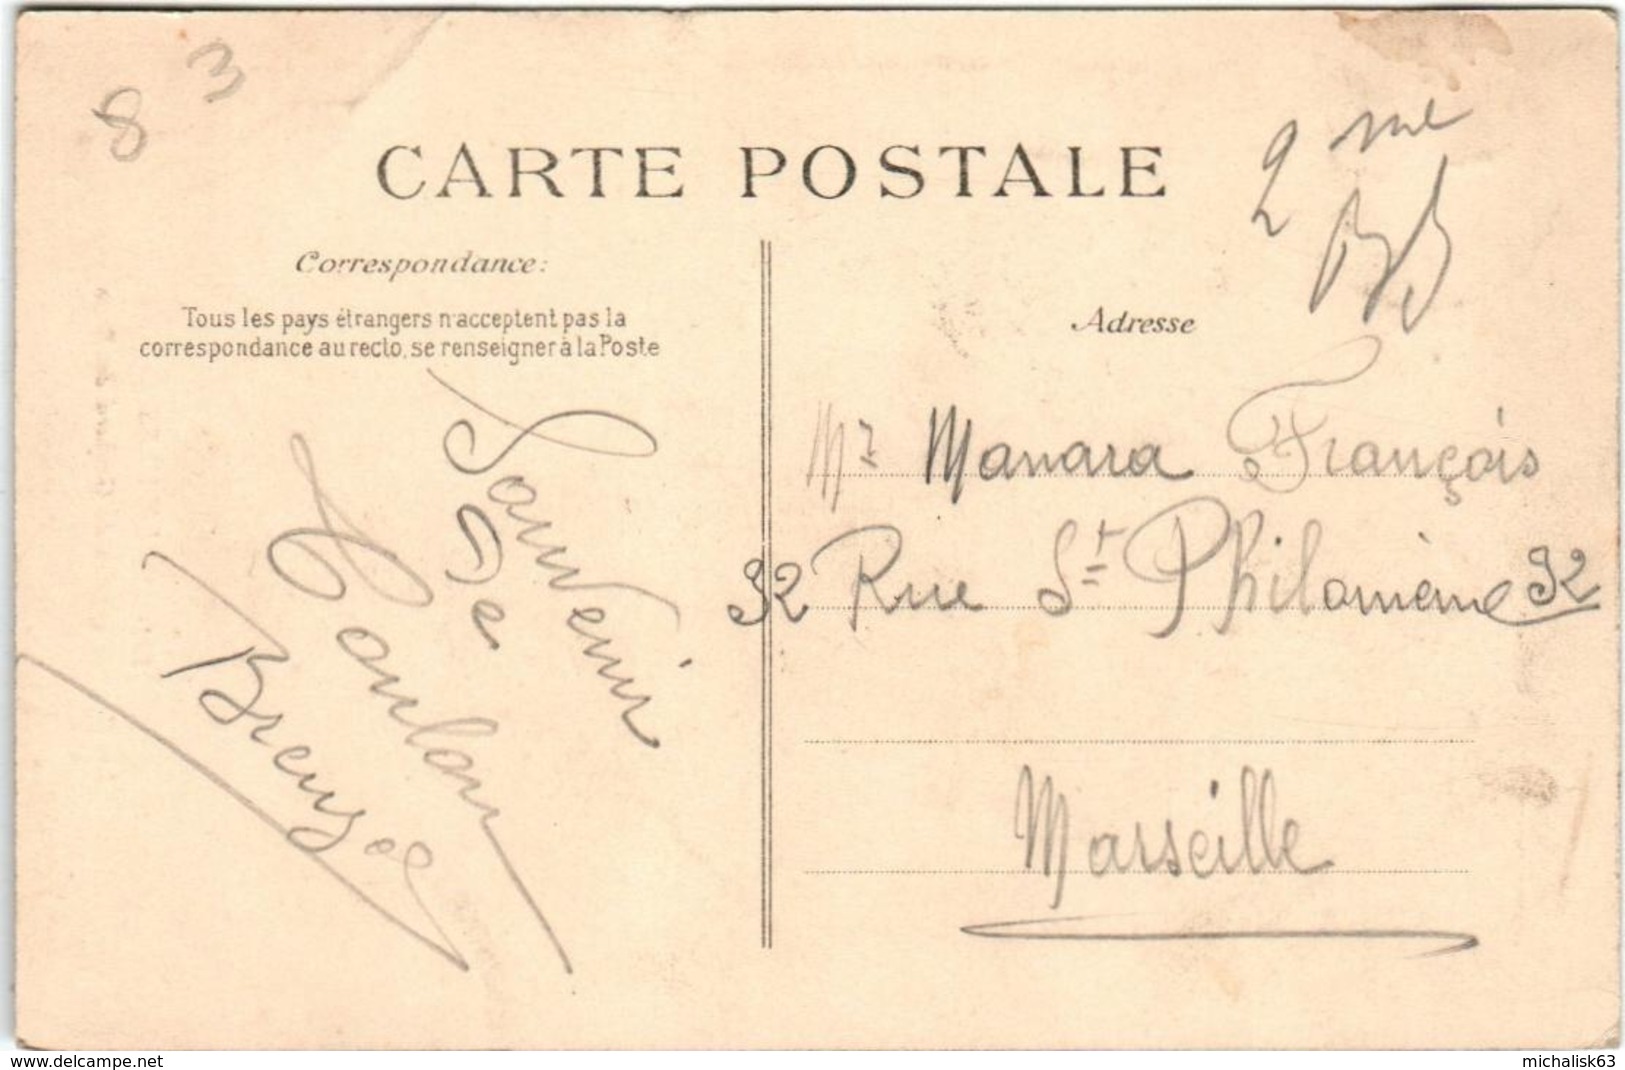 8 3
CARTE POSTALE
2 me
Correspondance:
Tous les pays étrangers n'acceptent pas la
correspondance au recto, se renseigner à la Poste
Souvenir
De
Toulon
Adresse
Mr Manara François
32 Rue St Philomène 32
Marseille
www.delcampe.net
michalisk63